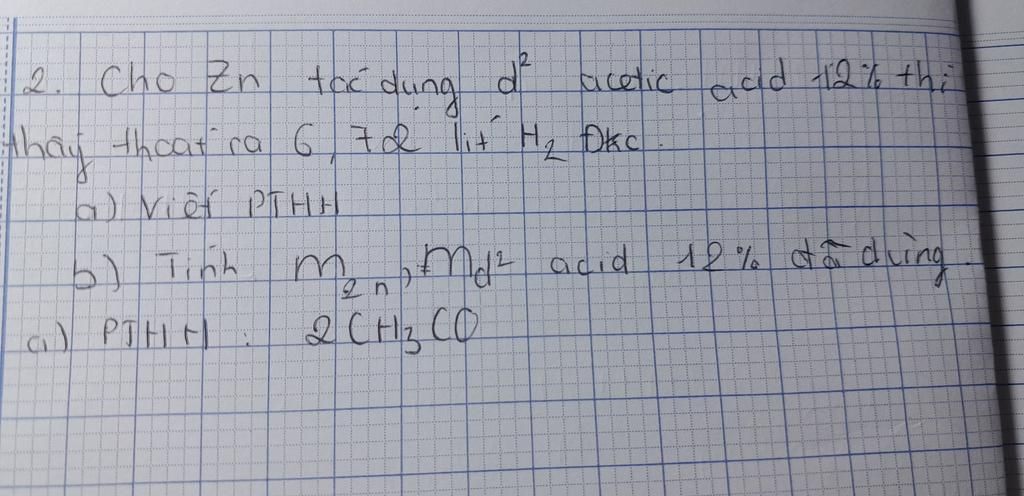 2. Cho Zn tác dụng d² acetic acid 12% thì
thấy thoát ra 6,72 lít H₂ Đkc.
a) Viết PTHH
b) Tính m Zn, m d² acid 12% đã dùng.
a) PTHH: 2CH₃CO